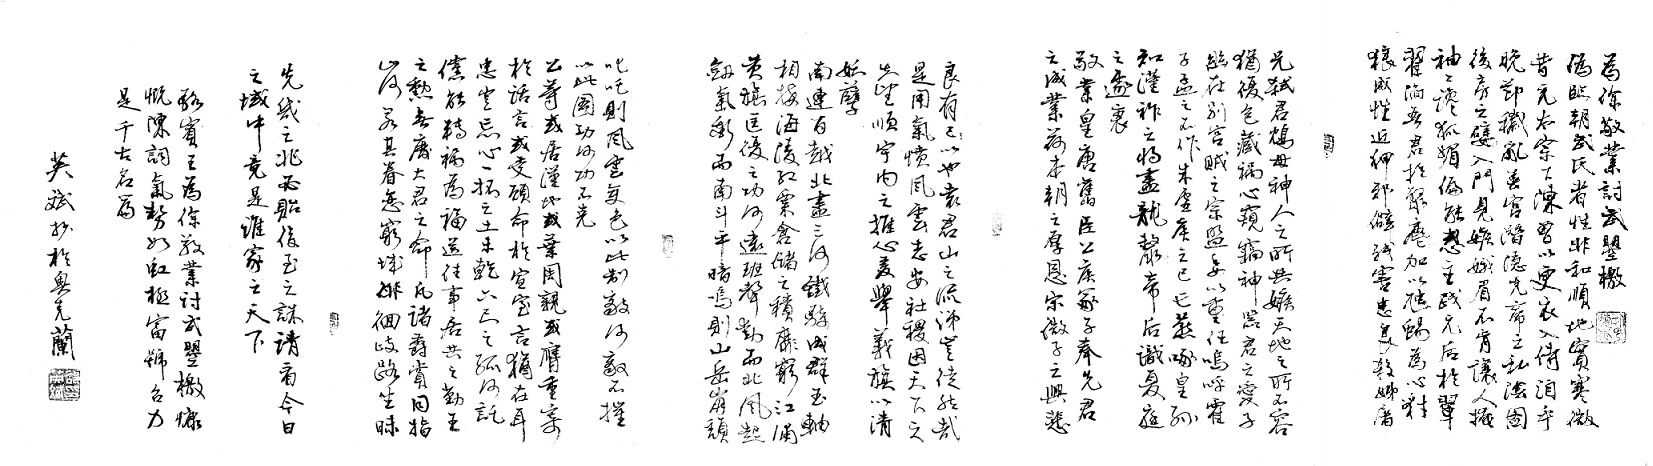 為徐敬業討武曌檄
偽臨朝武氏者性非和順地實寒微
昔充太宗下陳曾以更衣入侍洎乎
晚節穢亂春宮潛隱先帝之私陰圖
後房之嬖入門見嫉蛾眉不肯讓人掩
袖工讒狐媚偏能惑主踐元后於翬
翟陷吾君於聚麀加以虺蜴為心豺
狼成性近狎邪僻殘害忠良殺姊屠
兄弒君鴆母神人之所共嫉天地之所不容
猶復包藏禍心窺竊神器君之愛子
幽在別宮賊之宗盟委以重任嗚呼霍
子孟之不作朱虛侯之已亡燕啄皇孫
知漢祚之將盡龍漦帝后識夏庭
之遽衰
敬業皇唐舊臣公侯冢子奉先君
之成業荷本朝之厚恩宋微子之興悲
良有以也袁君山之流涕豈徒然哉
是用氣憤風雲志安社稷因天下之
失望順宇內之推心爰舉義旗以清
妖孽
南連百越北盡三河鐵騎成群玉軸
相接海陵紅粟倉儲之積靡窮江浦
黃旗匡復之功何遠班聲動而北風起
劍氣衝而南斗平暗嗚則山岳崩頹
叱吒則風雲變色以此制敵何敵不摧
以此圖功何功不克
公等或居漢地或葉周親或膺重寄
於話言或受顧命於宣室言猶在耳
忠豈忘心一抔之土未乾六尺之孤何託
儻能轉禍為福送往事居共立勤王
之勳無廢大君之命凡諸爵賞同指
山河若其眷戀窮城徘徊歧路坐昧
先幾之兆必貽後至之誅請看今日
之域中竟是誰家之天下
駱賓王為徐敬業討武曌檄慷
慨陳詞氣勢如虹極富號召力
是千古名篇
英斌抄於奧克蘭